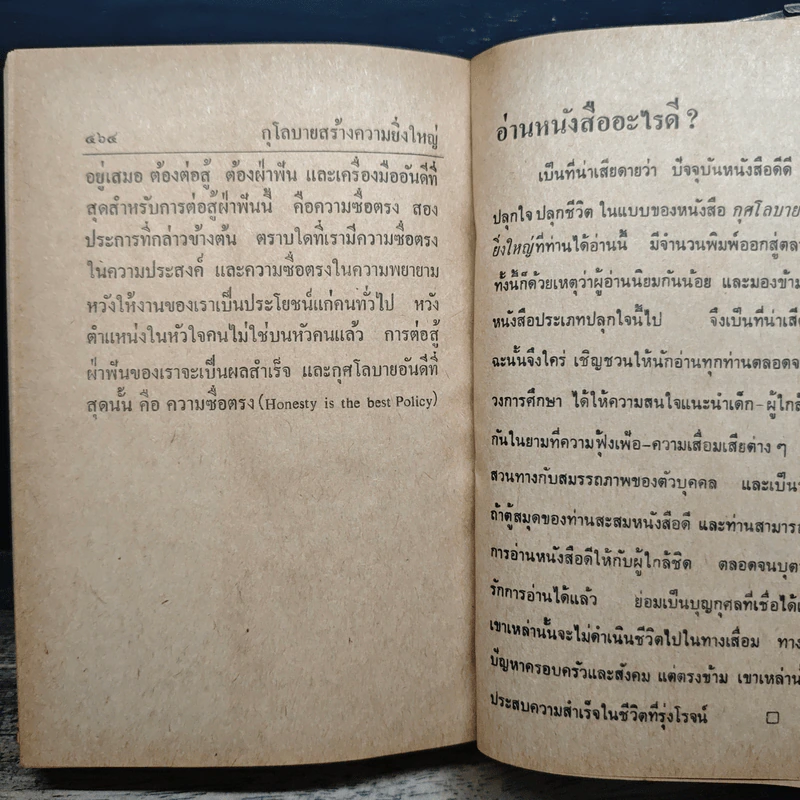 ๔๖๔
กุโลบายสร้างความยิ่งใหญ่
อยู่เสมอ ต้องต่อสู้ ต้องฝ่าฟัน และเครื่องมืออันดีที่
สุดสำหรับการต่อสู้ฝ่าฟันนี้ คือความซื่อตรง สอง
ประการที่กล่าวข้างต้น ตราบใดที่เรามีความซื่อตรง
ในความประสงค์ และความซื่อตรงในความพยายาม
หวังให้งานของเราเป็นประโยชน์แก่คนทั่วไป หวัง
ตำแหน่งในหัวใจคนไม่ใช่บนหัวคนแล้ว การต่อสู้
ฝ่าฟันของเราจะเป็นผลสำเร็จ และกุศโลบายอันดีที่
สุดนั้น คือ ความซื่อตรง (Honesty is the best Policy)
อ่านหนังสืออะไรดี ?
เป็นที่น่าเสียดายว่า ปัจจุบันหนังสือดีดี
ปลุกใจ ปลุกชีวิต ในแบบของหนังสือ กุศโลบาย
ยิ่งใหญ่ที่ท่านได้อ่านนี้ มีจำนวนพิมพ์ออกสู่ตล
ทั้งนี้ก็ด้วยเหตุว่าผู้อ่านนิยมกันน้อย และมองข้าม
หนังสือประเภทปลุกใจนี้ไป จึงเป็นที่น่าเสี
ฉะนั้นจึงใคร่ เชิญชวนให้นักอ่านทุกท่านตลอดจ
วงการศึกษา ได้ให้ความสนใจแนะนำเด็ก-ผู้ใกล้
กันในยามที่ความฟุ้งเฟ้อ-ความเสื่อมเสียต่าง ๆ
สวนทางกับสมรรถภาพของตัวบุคคล และเป็น
ถ้าตู้สมุดของท่านสะสมหนังสือดี และท่านสามาร
การอ่านหนังสือดีให้กับผู้ใกล้ชิด ตลอดจนบุต
รักการอ่านได้แล้ว ย่อมเป็นบุญกุศลที่เชื่อได้
เขาเหล่านั้นจะไม่ดำเนินชีวิตไปในทางเสื่อม ทาง
ปัญหาครอบครัวและสังคม แต่ตรงข้าม เขาเหล่านั้
ประสบความสำเร็จในชีวิตที่รุ่งโรจน์ □